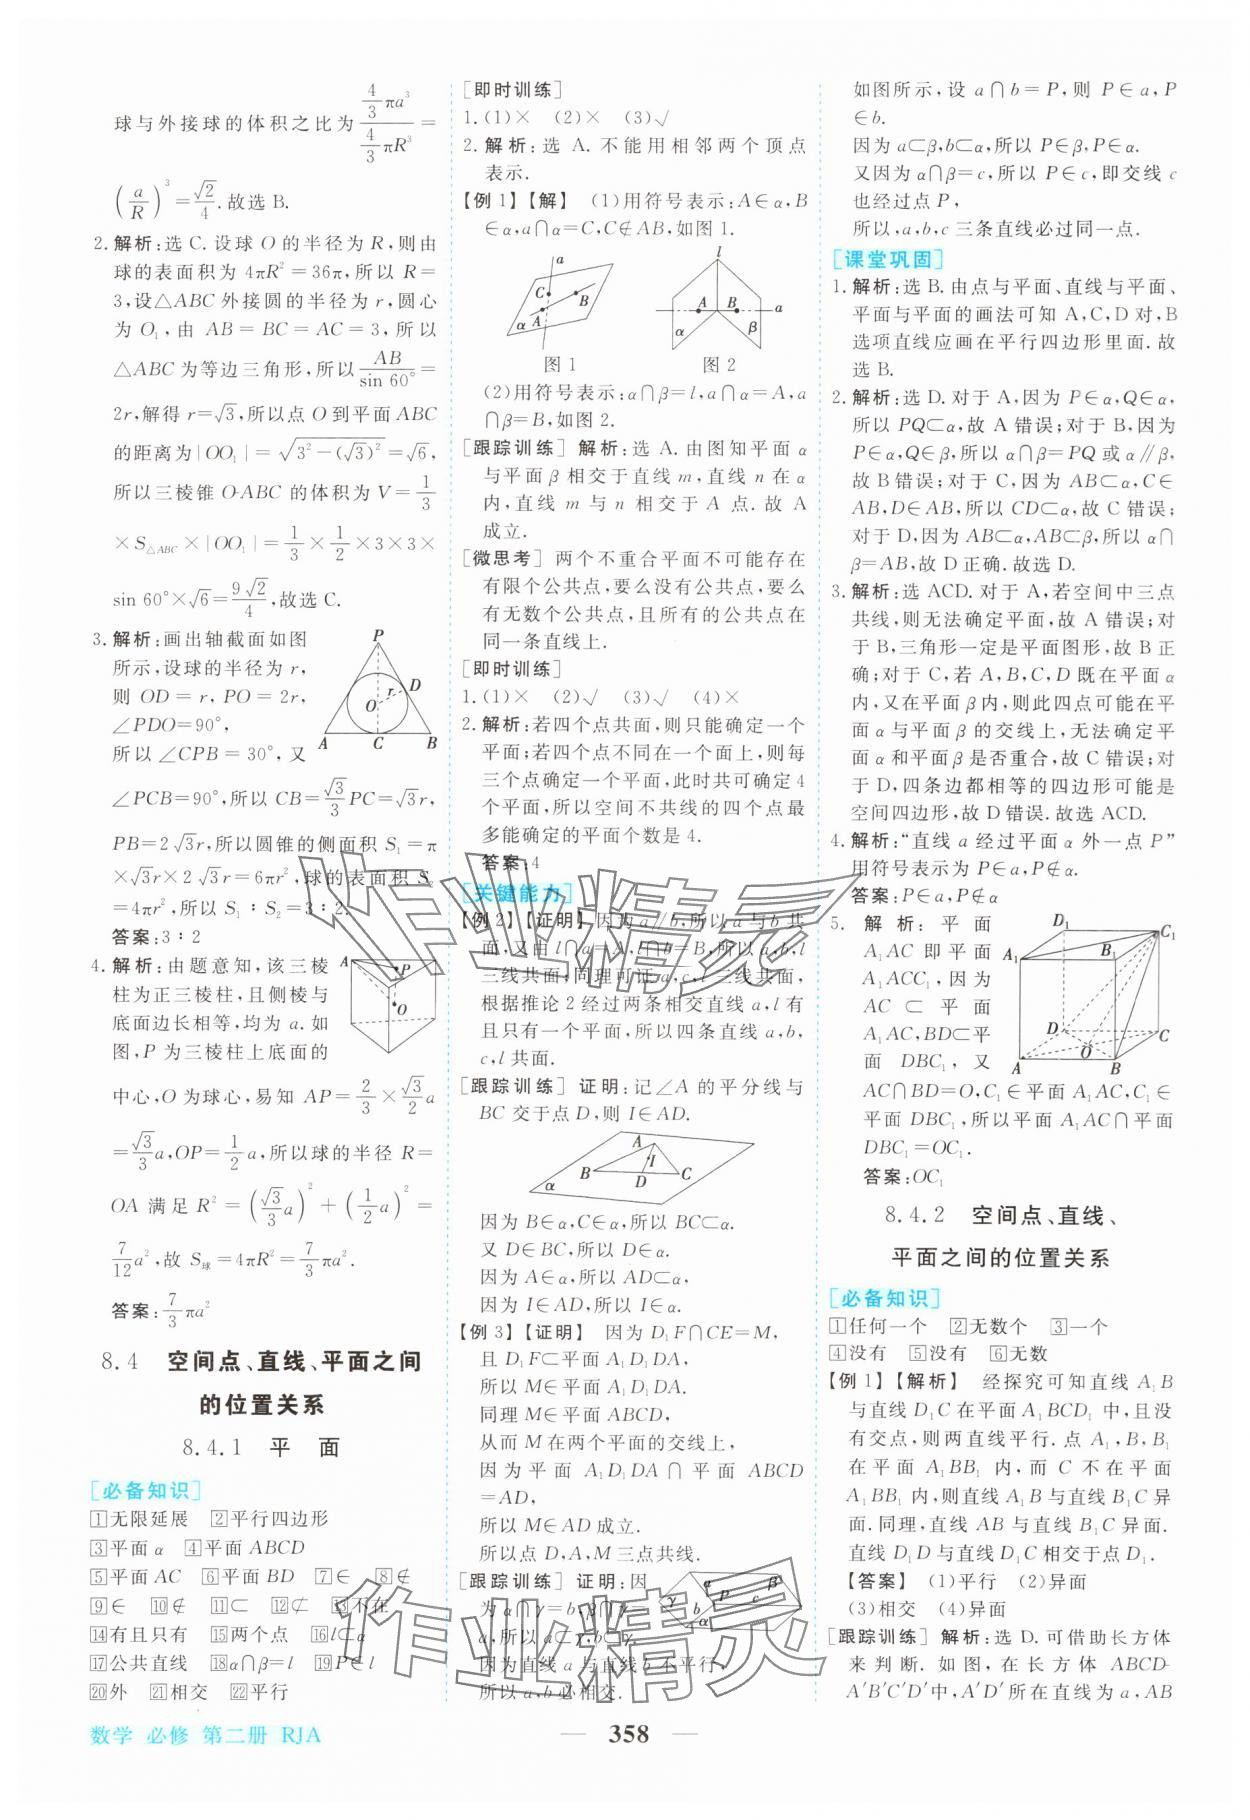 球与外接球的体积之比为 \frac{\frac{4}{3}πa³}{\frac{4}{3}πR³} =
(a/R)³ = √2/4. 故选 B.
2. 解析:选 C. 设球 O 的半径为 R,则由
球的表面积为 4πR²=36π,所以 R=
3,设△ABC 外接圆的半径为 r,圆心
为 O₁,由 AB=BC=AC=3,所以
△ABC 为等边三角形,所以 AB/sin 60°=
2r,解得 r=√3,所以点 O 到平面 ABC
的距离为|OO₁|=√(3²-(√3)²)=√6,
所以三棱锥 O-ABC 的体积为 V=1/3
×S△ABC×|OO₁|=1/3×1/2×3×3×
sin 60°×√6=9√2/4,故选 C.
3. 解析:画出轴截面如图
所示,设球的半径为 r,
则 OD=r,PO=2r,
∠PDO=90°,
所以∠CPB=30°,又
∠PCB=90°,所以 CB=√3/3 PC=√3r,
PB=2√3r,所以圆锥的侧面积 S₁=π
×√3r×2√3r=6πr²,球的表面积 S₂
=4πr²,所以 S₁∶S₂=3∶2.
答案:3∶2
4. 解析:由题意知,该三棱
柱为正三棱柱,且侧棱与
底面边长相等,均为 a. 如
图,P 为三棱柱上底面的
中心,O 为球心,易知 AP=2/3×√3/2 a
=√3/3 a,OP=1/2 a,所以球的半径 R=
OA 满足 R²=(√3/3 a)²+(1/2 a)²=
7/12 a²,故 S球=4πR²=7/3 πa².
答案:7/3 πa²
8.4 空间点、直线、平面之间
的位置关系
8.4.1 平 面
[必备知识]
1无限延展 2平行四边形
3平面 α 4平面 ABCD
5平面 AC 6平面 BD 7∈ 8∉
9∈ 10∉ 11⊂ 12⊄ 13不在
14有且只有 15两个点 16l⊂α
17公共直线 18α∩β=l 19P∈l
20外 21相交 22平行
[即时训练]
1.(1)× (2)× (3)√
2. 解析:选 A. 不能用相邻两个顶点
表示.
【例 1】【解】 (1)用符号表示:A∈α,B
∈α,a∩α=C,C∉AB,如图 1.
a
C
B
α A
图 1
l
A B a
α β
图 2
(2)用符号表示:α∩β=l,a∩α=A,a
∩β=B,如图 2.
[跟踪训练] 解析:选 A. 由图知平面 α
与平面 β 相交于直线 m,直线 n 在 α
内,直线 m 与 n 相交于 A 点. 故 A
成立.
[微思考] 两个不重合平面不可能存在
有限个公共点,要么没有公共点,要么
有无数个公共点,且所有的公共点在
同一条直线上.
[即时训练]
1.(1)× (2)√ (3)√ (4)×
2. 解析:若四个点共面,则只能确定一个
平面;若四个点不同在一个面上,则每
三个点确定一个平面,此时共可确定 4
个平面,所以空间不共线的四个点最
多能确定的平面个数是 4.
答案:4
[关键能力]
【例 2】【证明】 因为 a∥b,所以 a 与 b 共
面,又由 l∩a=A,l∩b=B,所以 a,b,l
三线共面;同理可证 a,c,l 三线共面,
根据推论 2 经过两条相交直线 a,l 有
且只有一个平面,所以四条直线 a,b,
c,l 共面.
[跟踪训练] 证明:记∠A 的平分线与
BC 交于点 D,则 I∈AD.
A
I
B D C
α
因为 B∈α,C∈α,所以 BC⊂α.
又 D∈BC,所以 D∈α.
因为 A∈α,所以 AD⊂α,
因为 I∈AD,所以 I∈α.
【例 3】【证明】 因为 D₁F∩CE=M,
且 D₁F⊂平面 A₁D₁DA,
所以 M∈平面 A₁D₁DA.
同理 M∈平面 ABCD,
从而 M 在两个平面的交线上,
因为平面 A₁D₁DA∩平面 ABCD
=AD,
所以 M∈AD 成立.
所以点 D,A,M 三点共线.
[跟踪训练] 证明:因
为 α∩γ=b,β∩γ=
a,所以 a⊂γ,b⊂γ.
因为直线 a 与直线 b 不平行,
所以 a,b 必相交.
如图所示,设 a∩b=P,则 P∈a,P
∈b.
因为 a⊂β,b⊂α,所以 P∈β,P∈α.
又因为 α∩β=c,所以 P∈c,即交线 c
也经过点 P,
所以,a,b,c 三条直线必过同一点.
[课堂巩固]
1. 解析:选 B. 由点与平面、直线与平面、
平面与平面的画法可知 A,C,D 对,B
选项直线应画在平行四边形里面. 故
选 B.
2. 解析:选 D. 对于 A,因为 P∈α,Q∈α,
所以 PQ⊂α,故 A 错误;对于 B,因为
P∈α,Q∈β,所以 α∩β=PQ 或 α∥β,
故 B 错误;对于 C,因为 AB⊂α,C∈
AB,D∈AB,所以 CD⊂α,故 C 错误;
对于 D,因为 AB⊂α,AB⊂β,所以 α∩
β=AB,故 D 正确. 故选 D.
3. 解析:选 ACD. 对于 A,若空间中三点
共线,则无法确定平面,故 A 错误;对
于 B,三角形一定是平面图形,故 B 正
确;对于 C,若 A,B,C,D 既在平面 α
内,又在平面 β 内,则此四点可能在平
面 α 与平面 β 的交线上,无法确定平
面 α 和平面 β 是否重合,故 C 错误;对
于 D,四条边都相等的四边形可能是
空间四边形,故 D 错误. 故选 ACD.
4. 解析:“直线 a 经过平面 α 外一点 P”
用符号表示为 P∈a,P∉α.
答案:P∈a,P∉α
5. 解析:平面
A₁AC 即平面
A₁ACC₁,因为
AC⊂平面
A₁AC,BD⊂平
面 DBC₁,又
AC∩BD=O,C₁∈平面 A₁AC,C₁∈
平面 DBC₁,所以平面 A₁AC∩平面
DBC₁=OC₁.
答案:OC₁
8.4.2 空间点、直线、
平面之间的位置关系
[必备知识]
1任何一个 2无数个 3一个
4没有 5没有 6无数
【例 1】【解析】 经探究可知直线 A₁B
与直线 D₁C 在平面 A₁BCD₁ 中,且没
有交点,则两直线平行. 点 A₁,B,B₁
在平面 A₁BB₁ 内,而 C 不在平面
A₁BB₁ 内,则直线 A₁B 与直线 B₁C 异
面. 同理,直线 AB 与直线 B₁C 异面.
直线 D₁D 与直线 D₁C 相交于点 D₁.
【答案】 (1)平行 (2)异面
(3)相交 (4)异面
[跟踪训练] 解析:选 D. 可借助长方体
来判断. 如图,在长方体 ABCD-
A′B′C′D′中,A′D′所在直线为 a,AB
数学 必修 第二册 RJA
— 358 —
作业精灵
作业精灵